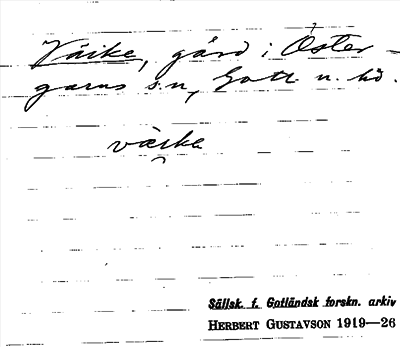 Väike, gård i Öster-
garns sn, Gotl. n. hd.
väike
Sällsk. f. Gotländsk forskn. arkiv
HERBERT GUSTAVSON 1919—26